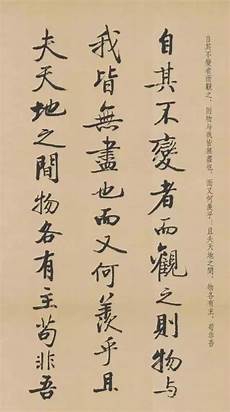 自其不變者而觀之，則物与我皆無盡也，而又何羨乎；且夫天地之間，物各有主，苟非吾
自其不變者而觀之則物与
我皆無盡也而又何羨乎且
夫天地之間物各有主苟非吾